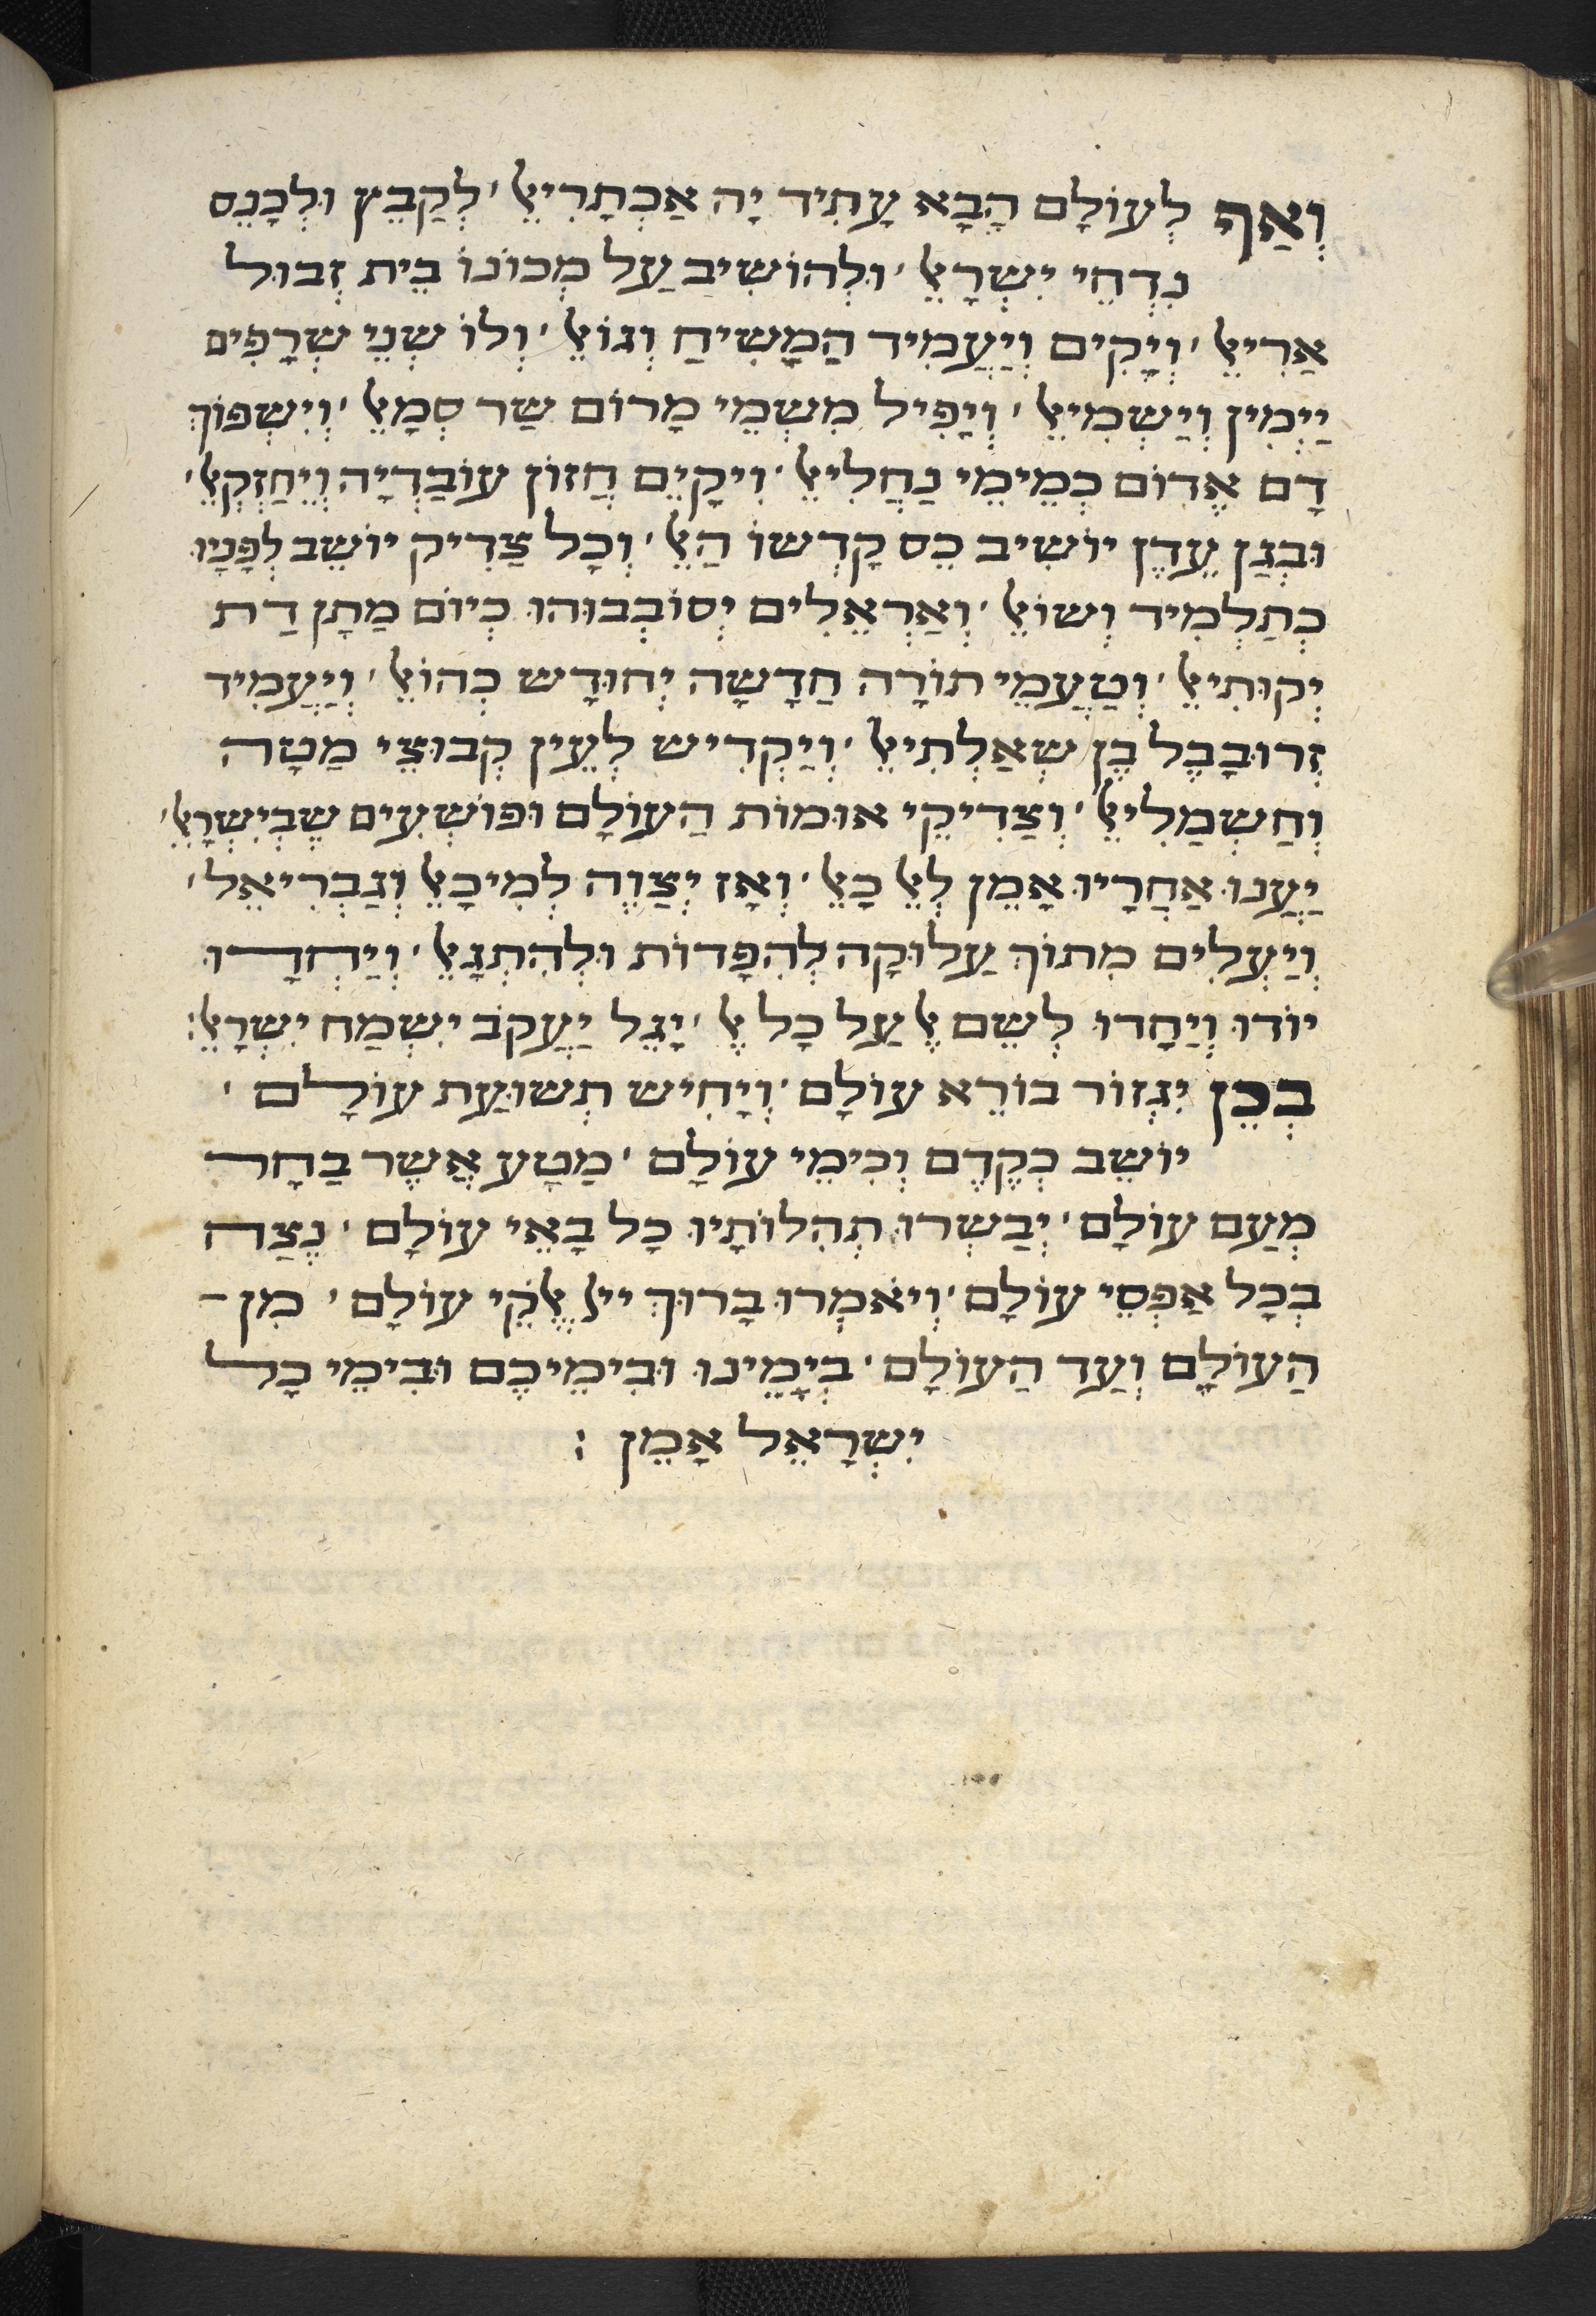 וְאַף לְעוֹלָם הַבָּא עָתִיד יָה אַכְתָרִיאֵל׳ לְקַבֵּץ וּלְכַנֵּס
נִדְחֵי יִשְרָאֵל׳ וּלְהוֹשִיב עַל מְכוֹנוֹ בֵּית זְבוּל
אַרִיאֵל׳ וְיָקִים וְיַעֲמִיד הַמָשִיחַ וְגוֹאֵל׳ וְלוֹ שְנֵי שְרָפִים
יַיְמִין וְיַשְמִיאֵל׳ וְיַפִּיל מִשְמֵי מָרוֹם שַר סְמָאֵל׳ וְיִשְפּוֹךְ
דָם אֱדוֹם כְּמֵימֵי נַחֲלִיאֵל׳ וִיקַיֵּם חֲזוֹן עוֹבַדְיָה וְיֵחַזְקְאֵל׳
וּבְגַן עֵדֶן יוֹשִיב כֵּס קָדְשוֹ הַאֵל׳ וְכָל צַדִיק יוֹשֵב לְפָנָיו
כְּתַלְמִיד וְשוֹאֵל׳ וְאַרְאֵלִים יְסוֹבְבוּהוּ כְּיוֹם מַתָן דַת
יְקוּתִיאֵל׳ וְטַעֲמֵי תוֹרָה חַדָשָה יְחוּדָש כְּהוֹאֵל׳ וְיַעֲמִיד
זְרוּבָּבֶל בֶּן שְאַלְתִיאֵל׳ וְיַקְדִיש לְעֵין קְבוּצֵי מַטָה
וְחַשְמַלִיאֵל׳ וְצַדִיקֵי אוּמוֹת הַעוֹלָם וּפוֹשְעִים שֶבְיִשְרָאֵל׳
יַעֲנוּ אַחֲרָיו אָמֵן לְאֵל כָּאֵל׳ וְאָז יְצַוֶה לְמִיכָאֵל וְגַבְרִיאֵל׳
וְיַעְלִים מִתוֹךְ עַלוּקָה לְהִפָּדוֹת וּלְהִתְגָאֵל׳ וְיַחְדָו
יוֹדוּ וְיַחֲדוּ לְשֵם אֵל עַל כָּל אֵל׳ יָגֵל יַעֲקֹב יִשְמַח יִשְרָאֵל׃
בְּכֵן יִגְזוֹר בּוֹרֵא עוֹלָם׳ וְיָחִיש תְשוּעַת עוֹלָם׳
יוֹשֵב כְּקֶדֶם וְכִימֵי עוֹלָם׳ מַטָע אֲשֶר בַּחָר
מְעַם עוֹלָם׳ יְבַשְרוּ תְהִלוֹתָיו כָּל בָּאֵי עוֹלָם׳ נֶצַח
בְּכָל אַפְסֵי עוֹלָם׳ וְיֹאמְרוּ בָּרוּךְ ייָ אֱלֹקֵי עוֹלָם׳ מִן־
הַעוֹלָם וְעַד הַעוֹלָם׳ בְּיָמֵינוּ וּבִימֵיכֶם וּבִימֵי כָּל
יִשְרָאֵל אָמֵן׃